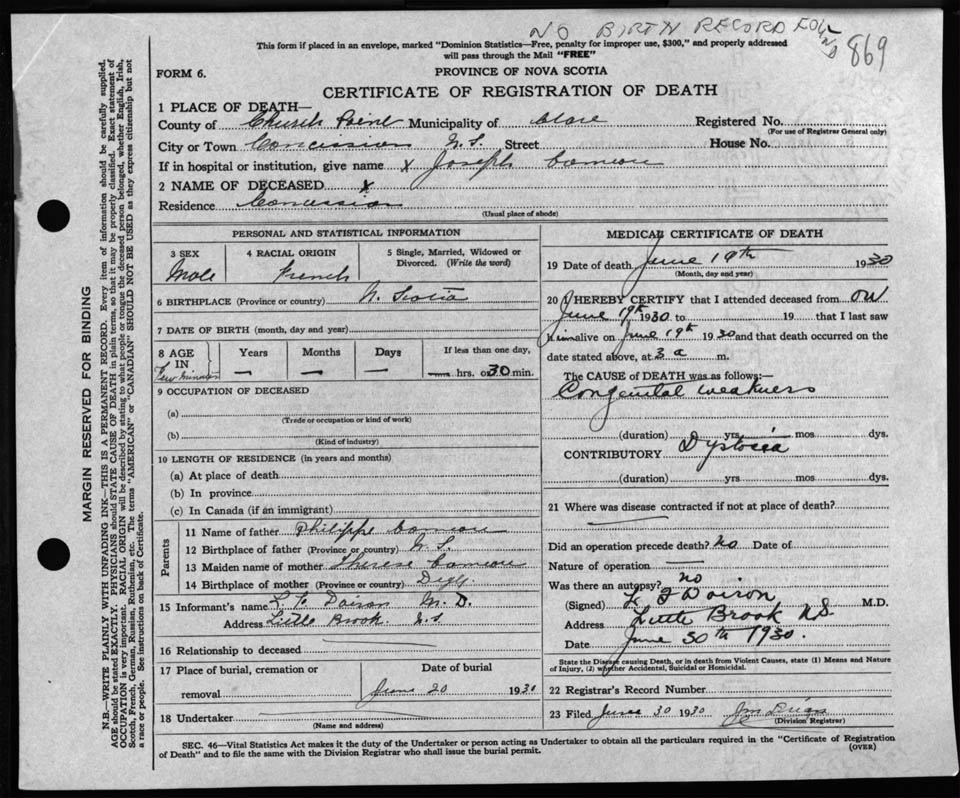 NO BIRTH RECORD FOUND
869
This form if placed in an envelope, marked "Dominion Statistics—Free, penalty for improper use, $300," and properly addressed
will pass through the Mail "FREE"
FORM 6.
PROVINCE OF NOVA SCOTIA
CERTIFICATE OF REGISTRATION OF DEATH
1 PLACE OF DEATH—
County of Church Point Municipality of Clare Registered No.
(For use of Registrar General only)
City or Town Concession N.S. Street House No.
If in hospital or institution, give name x Joseph Comeau
2 NAME OF DECEASED x
Residence Concession
(Usual place of abode)
PERSONAL AND STATISTICAL INFORMATION
3 SEX Male
4 RACIAL ORIGIN French
5 Single, Married, Widowed or Divorced. (Write the word)
6 BIRTHPLACE (Province or country) N. Scotia
7 DATE OF BIRTH (month, day and year)
8 AGE IN Few minutes
Years — Months — Days —
If less than one day, hrs. or 30 min.
9 OCCUPATION OF DECEASED
(a)
(Trade or occupation or kind of work)
(b)
(Kind of industry)
10 LENGTH OF RESIDENCE (in years and months)
(a) At place of death
(b) In province
(c) In Canada (if an immigrant)
Parents
11 Name of father Philippe Comeau
12 Birthplace of father (Province or country) N.S.
13 Maiden name of mother Therese Comeau
14 Birthplace of mother (Province or country) Digby
15 Informant's name L F Doiron M.D.
Address Little Brook N.S.
16 Relationship to deceased
17 Place of burial, cremation or removal
Date of burial
June 20 1930
18 Undertaker
(Name and address)
MEDICAL CERTIFICATE OF DEATH
19 Date of death June 19th 1930
(Month, day and year)
20 I HEREBY CERTIFY that I attended deceased from on
June 19th 1930 to 19 that I last saw
him alive on June 19th 1930 and that death occurred on the
date stated above, at 3 a m.
The CAUSE of DEATH was as follows:—
Congenital weakness
(duration) yrs mos dys.
CONTRIBUTORY Dystocia
(duration) yrs mos dys.
21 Where was disease contracted if not at place of death?
Did an operation precede death? No Date of
Nature of operation —
Was there an autopsy? no
(Signed) L F Doiron M.D.
Address Little Brook NS
Date June 30th 1930.
State the Disease causing Death, or in death from Violent Causes, state (1) Means and Nature
of Injury, (2) whether Accidental, Suicidal or Homicidal.
22 Registrar's Record Number
23 Filed June 30 1930
(Division Registrar)
SEC. 46—Vital Statistics Act makes it the duty of the Undertaker or person acting as Undertaker to obtain all the particulars required in the "Certificate of Registration
of Death" and to file the same with the Division Registrar who shall issue the burial permit.
(OVER)
MARGIN RESERVED FOR BINDING
N.B.—WRITE PLAINLY WITH UNFADING INK—THIS IS A PERMANENT RECORD. Every item of information should be carefully supplied.
AGE should be stated EXACTLY. PHYSICIANS should STATE CAUSE OF DEATH in plain terms, so that it may be properly classified. Exact statement of
OCCUPATION is very important. RACIAL ORIGIN will be described by stating to what people or tongue the deceased person belonged, whether English, Irish,
Scotch, French, German, Russian, Ruthenian, etc. The terms "AMERICAN" or "CANADIAN" SHOULD NOT BE USED as they express citizenship but not
a race or people. See instructions on back of Certificate.